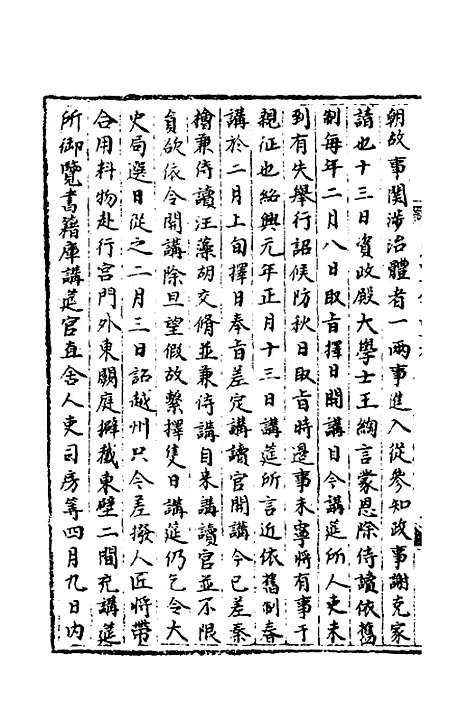 朝故事関涉治體者一兩事進入從參知政事謝克家
請也十三日資政殿大學士王綯言蒙恩除侍讀依舊
制每年二月八日取旨擇日開講目今講筵所人吏未
到有失舉行詔候防秋日取旨時邊事未寧將有事于
親征也紹興元年正月十三日講筵所言近依舊制春
講於二月上旬擇日奉旨差定講讀官開講今已差秦
檜兼侍讀汪藻胡交脩並兼侍講自來講讀官並不限
負欲依令開講除旦望假故繫擇隻日講筵仍乞令大
史局選日從之二月三日詔越州只令差撥人匠將帶
合用料物赴行宮門外東闕庭擗截東壁二間充講筵
所御覽書籍庫講筵官直舍人吏司房等四月九日內